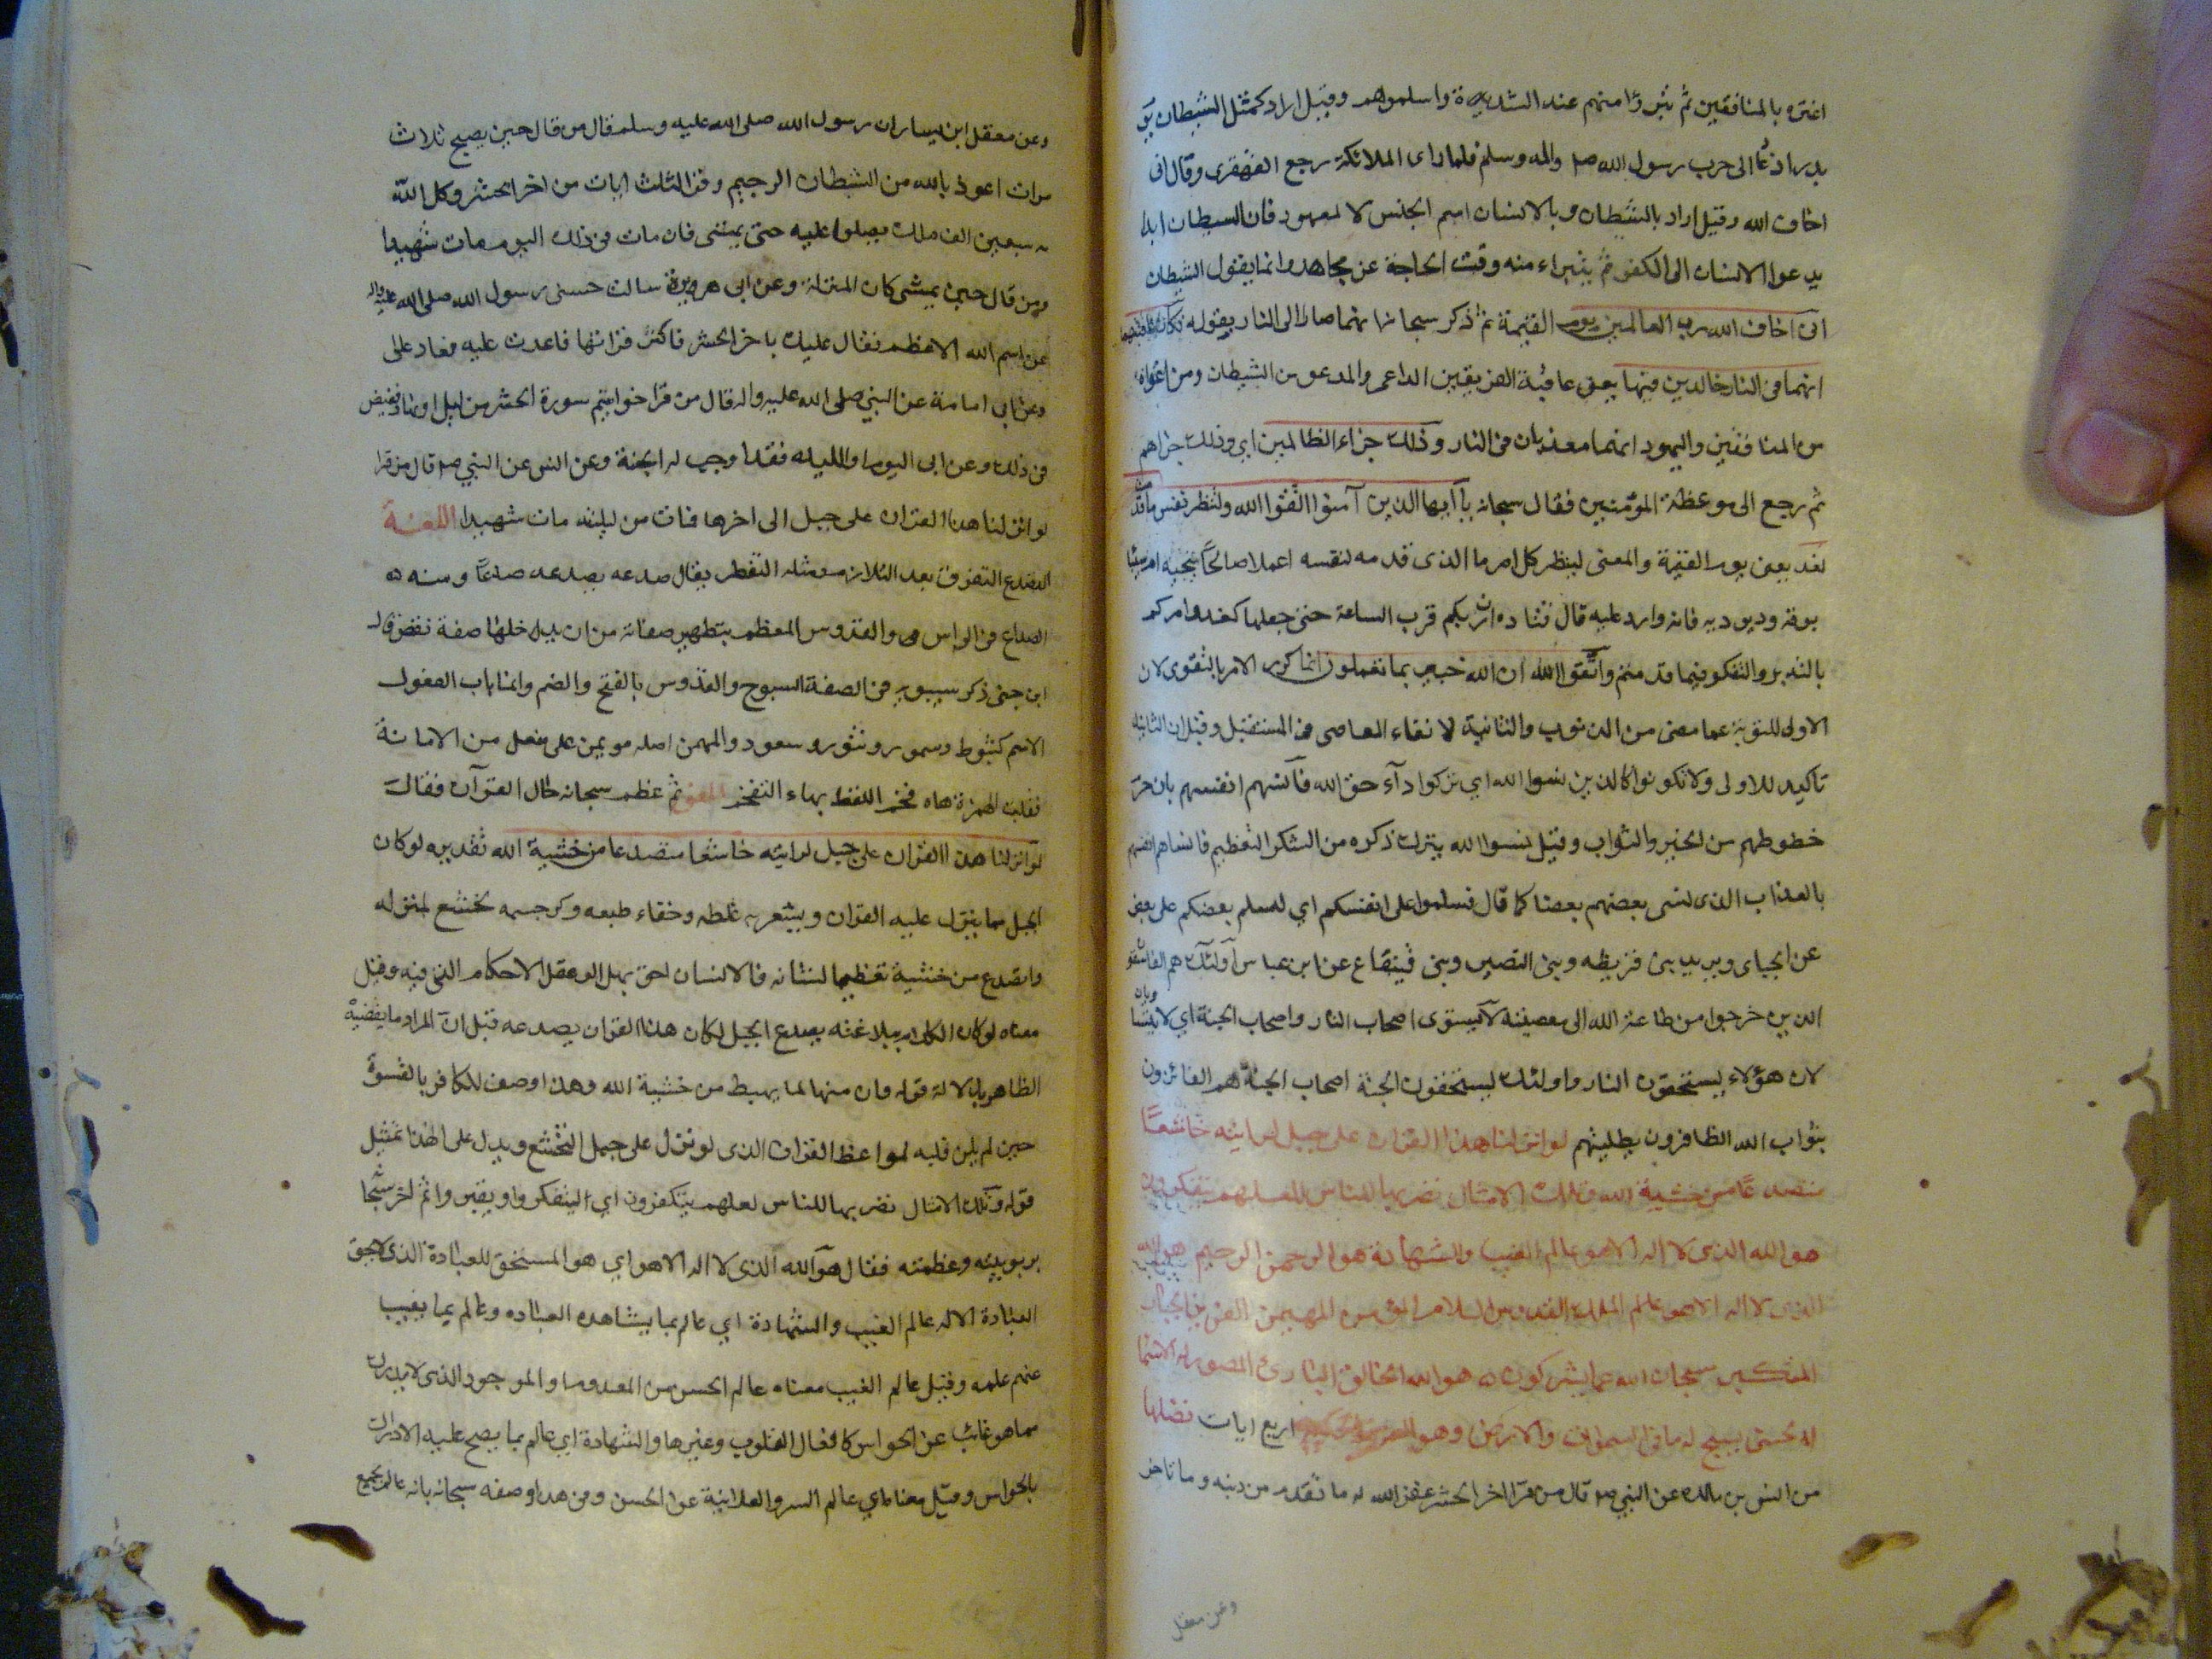 اغتره بالمنافقين ثم تبرؤا منهم عند الشديدة واسلموهم وقيل اراد كمثل الشيطان يوم
بدر اذ دعا الى حرب رسول الله صلم واله وسلم فلما راى الملائكة رجع القهقرى وقال انى
اخاف الله وقيل اراد بالشيطان وبالانسان اسم الجنس لا المعهود فان الشيطان ابدا
يدعوا الانسان الى الكفر ثم يتبراء منه وقت الحاجة عن مجاهد وانما يقول الشيطان
انى اخاف الله رب العالمين يوم القيمة ثم ذكر سبحانه انهما صارا الى النار بقوله فكان عاقبتهما
انهما فى النار خالدين فيها يعنى عاقبة الفريقين الداعى والمدعو من الشيطان ومن اغواه
من المنافقين واليهود انهما معذبان فى النار وذلك جزاء الظالمين اي وذلك جزاهم
ثم رجع الى موعظة المؤمنين فقال سبحانه يا ايها الذين آمنوا اتقوا الله ولتنظر نفس ما قدمت
لغد يعنى يوم القيمة والمعنى لينظر كل امر ما الذى قدمه لنفسه اعملا صالحا ينجيه ام سيئا
يوقه ويوديه فانه وارد عليه قال قتاده ان ربكم قرب الساعة حتى جعلها كغد وامركم
بالتدبر والتفكر فيما قدمتم واتقوا الله ان الله خبير بما تعملون انما كرر الامر بالتقوى لان
الاولى للتوبة عما مضى من الذنوب والثانية لاتقاء المعاصى فى المستقبل وقيل ان الثانيه
تاكيد للاولى ولا تكونوا كالذين نسوا الله اي تركوا ادآء حق الله فانسهم انفسهم بان حرم
حظوظهم من الخير والثواب وقيل نسوا الله بترك ذكره من الشكر والتعظيم فانساهم انفسهم
بالعذاب الذى نسى بعضهم بعضا كما قال فسلموا على انفسكم اي ليسلم بعضكم على بعض
عن الجباى ويريد بنى قريظه وبنى النضير وبنى قينقاع عن ابن عباس اولئك هم الفاسقون
الذين خرجوا من طاعة الله الى معصيته لا يستوى اصحاب النار واصحاب الجنة اي لا يتساويان
لان هؤلاء يستحقون النار واولئك يستحقون الجنة اصحاب الجنة هم الفائزون
بثواب الله الظافرون بطلبتهم لو انزلنا هذا القران على جبل لرايته خاشعا
متصدعا من خشية الله وتلك الامثال نضربها للناس لعلهم يتفكرون
هو الله الذى لا اله الا هو عالم الغيب والشهادة هو الرحمن الرحيم هو الله
الذى لا اله الا هو عالم الملك القدوس السلام المؤمن المهيمن العزيز الجبار
المتكبر سبحان الله عما يشركون هو الله الخالق البارئ المصور له الاسما
الحسنى يسبح له ما فى السموات والارض وهو العزيز الحكيم اربع ايات فضلها
من انس بن مالك عن النبي صلم قال من قرا اخر الحشر غفر الله له ما تقدم من ذنبه وما تاخر
وعن معقل
وعن معقل ابن يسار ان رسول الله صلى الله عليه وسلم قال من قال حين يصبح ثلاث
مرات اعوذ بالله من الشيطان الرجيم وقرا الثلث ايات من اخر الحشر وكل الله
به سبعين الف ملك يصلوا عليه حتى يمسى فان مات فى ذلك اليوم مات شهيدا
ومن قال حين يمسى كان المنزلة وعن ابى هريرة سالت رسول الله صلى الله عليه واله
عن اسم الله الاعظم فقال عليك باخر الحشر فاكثر قرائتها فاعدت عليه فعاد على
وعن ابى امامة عن النبي صلى الله عليه واله قال من قرا خواتيم سورة الحشر من ليل او نهار فقبض
فى ذلك اليوم او الليله فقد اوجب له الجنة وعن انس عن النبي صلم قال من قرا
لو انزلنا هذا القران على جبل الى اخرها فمات من ليلته مات شهيدا اللغـة
التصدع التفرق بعد التلازم ومثله التفطر يقال صدعه يصدعه صدعا ومنه
الصداع فى الراس والقدوس المعظم بتطهير صفاته من ان يدخلها صفة نقص قال
ابن جنى ذكر سيبويه فى الصفة السبوح والقدوس بالفتح والضم وانما باب الفعول
الاسم كشبوط وسمور وتنور وسعود والمهيمن اصله مويمن على مفعل من الامانة
فقلبت الهمزة هاء فخم اللفظ بها التفخم ثم عظم سبحانه حال القرآن فقال
لو انزلنا هذا القران على جبل لرايته خاشعا متصدعا من خشية الله تقديره لو كان
الجبل مما ينزل عليه القران ويشعر به غلظه وجفاء طبعه وكبر جسمه لخشع لمنزله
وتصدع من خشية تعظيما لشانه فالانسان احق بهذا لو عقل الاحكام التى فيه وقيل
معناه لو كان الكلام ببلاغته يصدع الجبل لكان هذا القران يصدعه قيل ان المراد ما يقضيه
الظاهر بدلالة قوله وان منها لما يهبط من خشية الله وهذا وصف للكافر بالقسوة
حين لم يلن قلبه لمواعظ القران الذى لو نزل على جبل لتخشع ويدل على ان هذا تمثيل
قوله وتلك الامثال نضربها للناس لعلهم يتفكرون اي ليتفكروا ويعتبروا ثم اخبر سبحانه
بربوبيته وعظمته فقال هو الله الذى لا اله الا هو اي هو المستحق للعبادة الذى لا يحق
العبادة الا له عالم الغيب والشهادة اي عالم بما يشاهده العباده وعالم بما يغيب
عنهم علمه وقيل عالم الغيب معناه عالم الحس من المعدوم والموجود الذى لا يدرك
مما هو غائب عن الحواس كافعال القلوب وغيرها والشهادة اي عالم بما يصح عليه الادراك
بالحواس وقيل معناه اي عالم السر والعلانية عن الحسن وفى هذا وصفه سبحانه بانه عالم بجميع